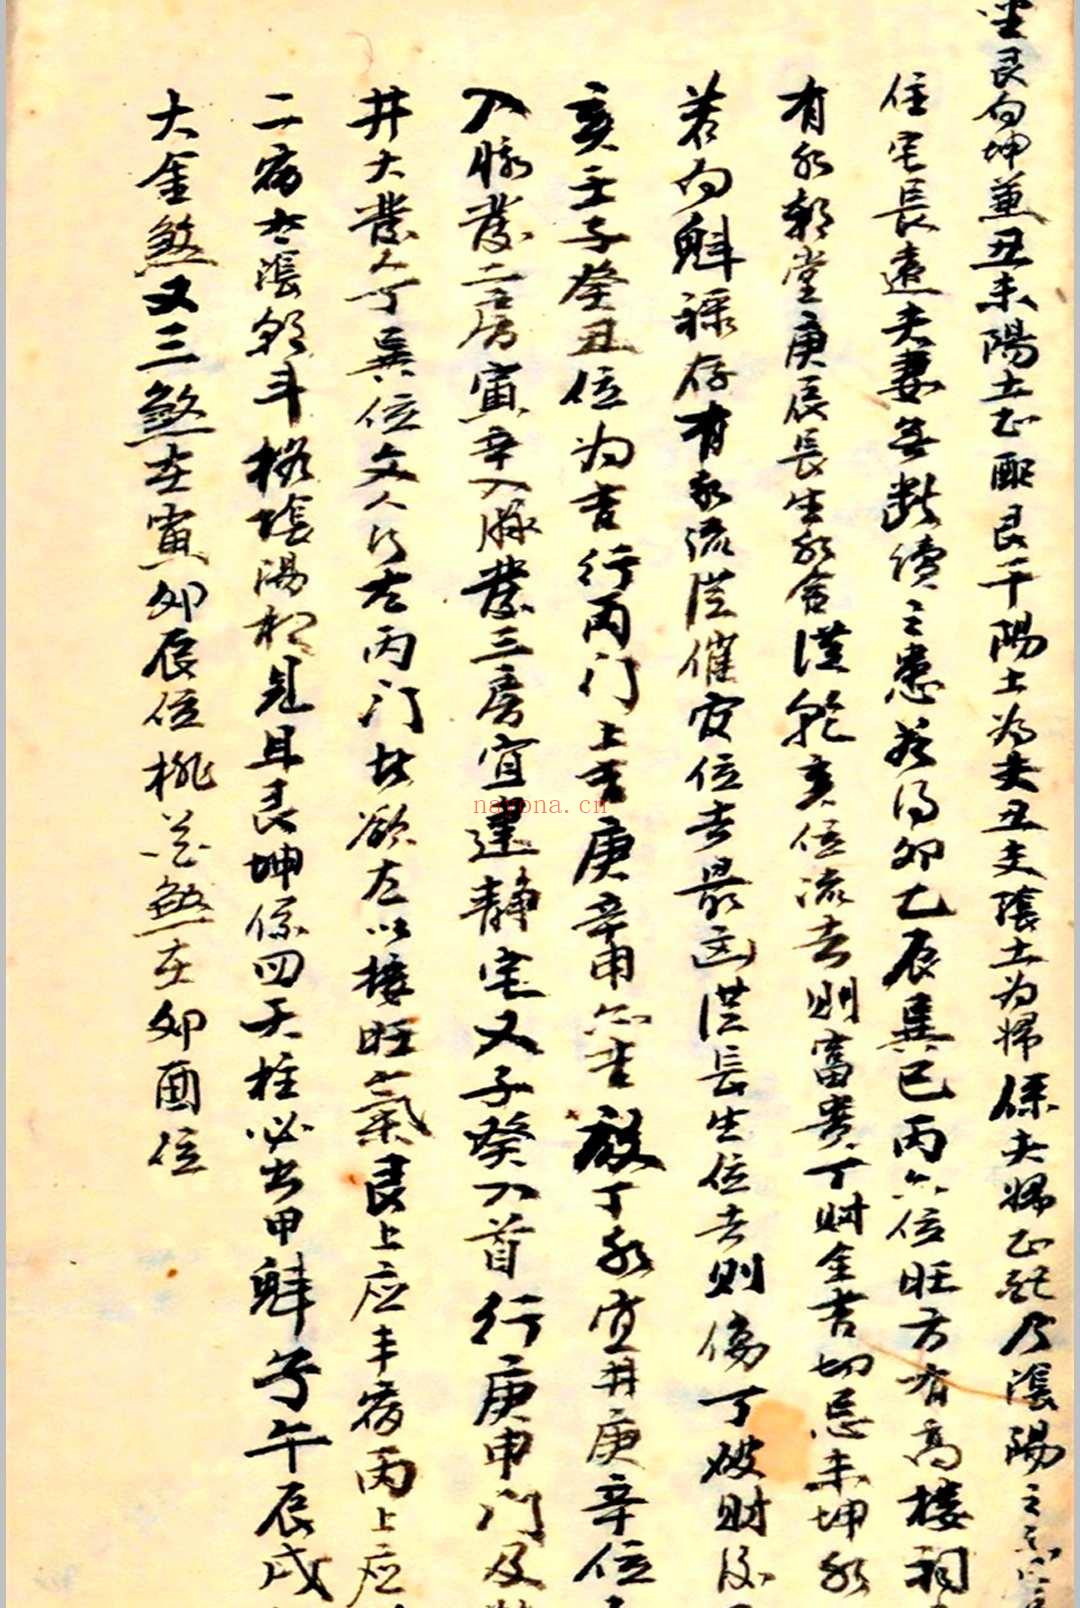 坐艮向坤兼丑未陽土正配艮干陽土為夫丑支陰土為婦係夫婦正配乃陰陽之
住宅長遠夫妻無斷續之患若得卯乙辰巽巳丙六位旺方有高樓祠
有水朝堂庚辰長生水會從乾亥位流去則富貴丁財全吉切忌未坤水
若向魁祿存有水流從催官位去最凶從長生位去則傷丁破財
亥壬子癸丑位為吉行丙门上吉庚辛甲亦吉放丁水宜井庚辛位
入脉發二房寅辛入脉發三房宜建靜宅又子癸入首行庚申门及
井大發人丁巽位文人 左丙门 欲左以接旺氣艮上应丰 丙上应
二 陰 斗 陰陽相見且艮坤係四天柱必出甲魁 午辰戌
大金煞又三煞在寅卯辰位桃花煞在卯酉位
nayona.cn